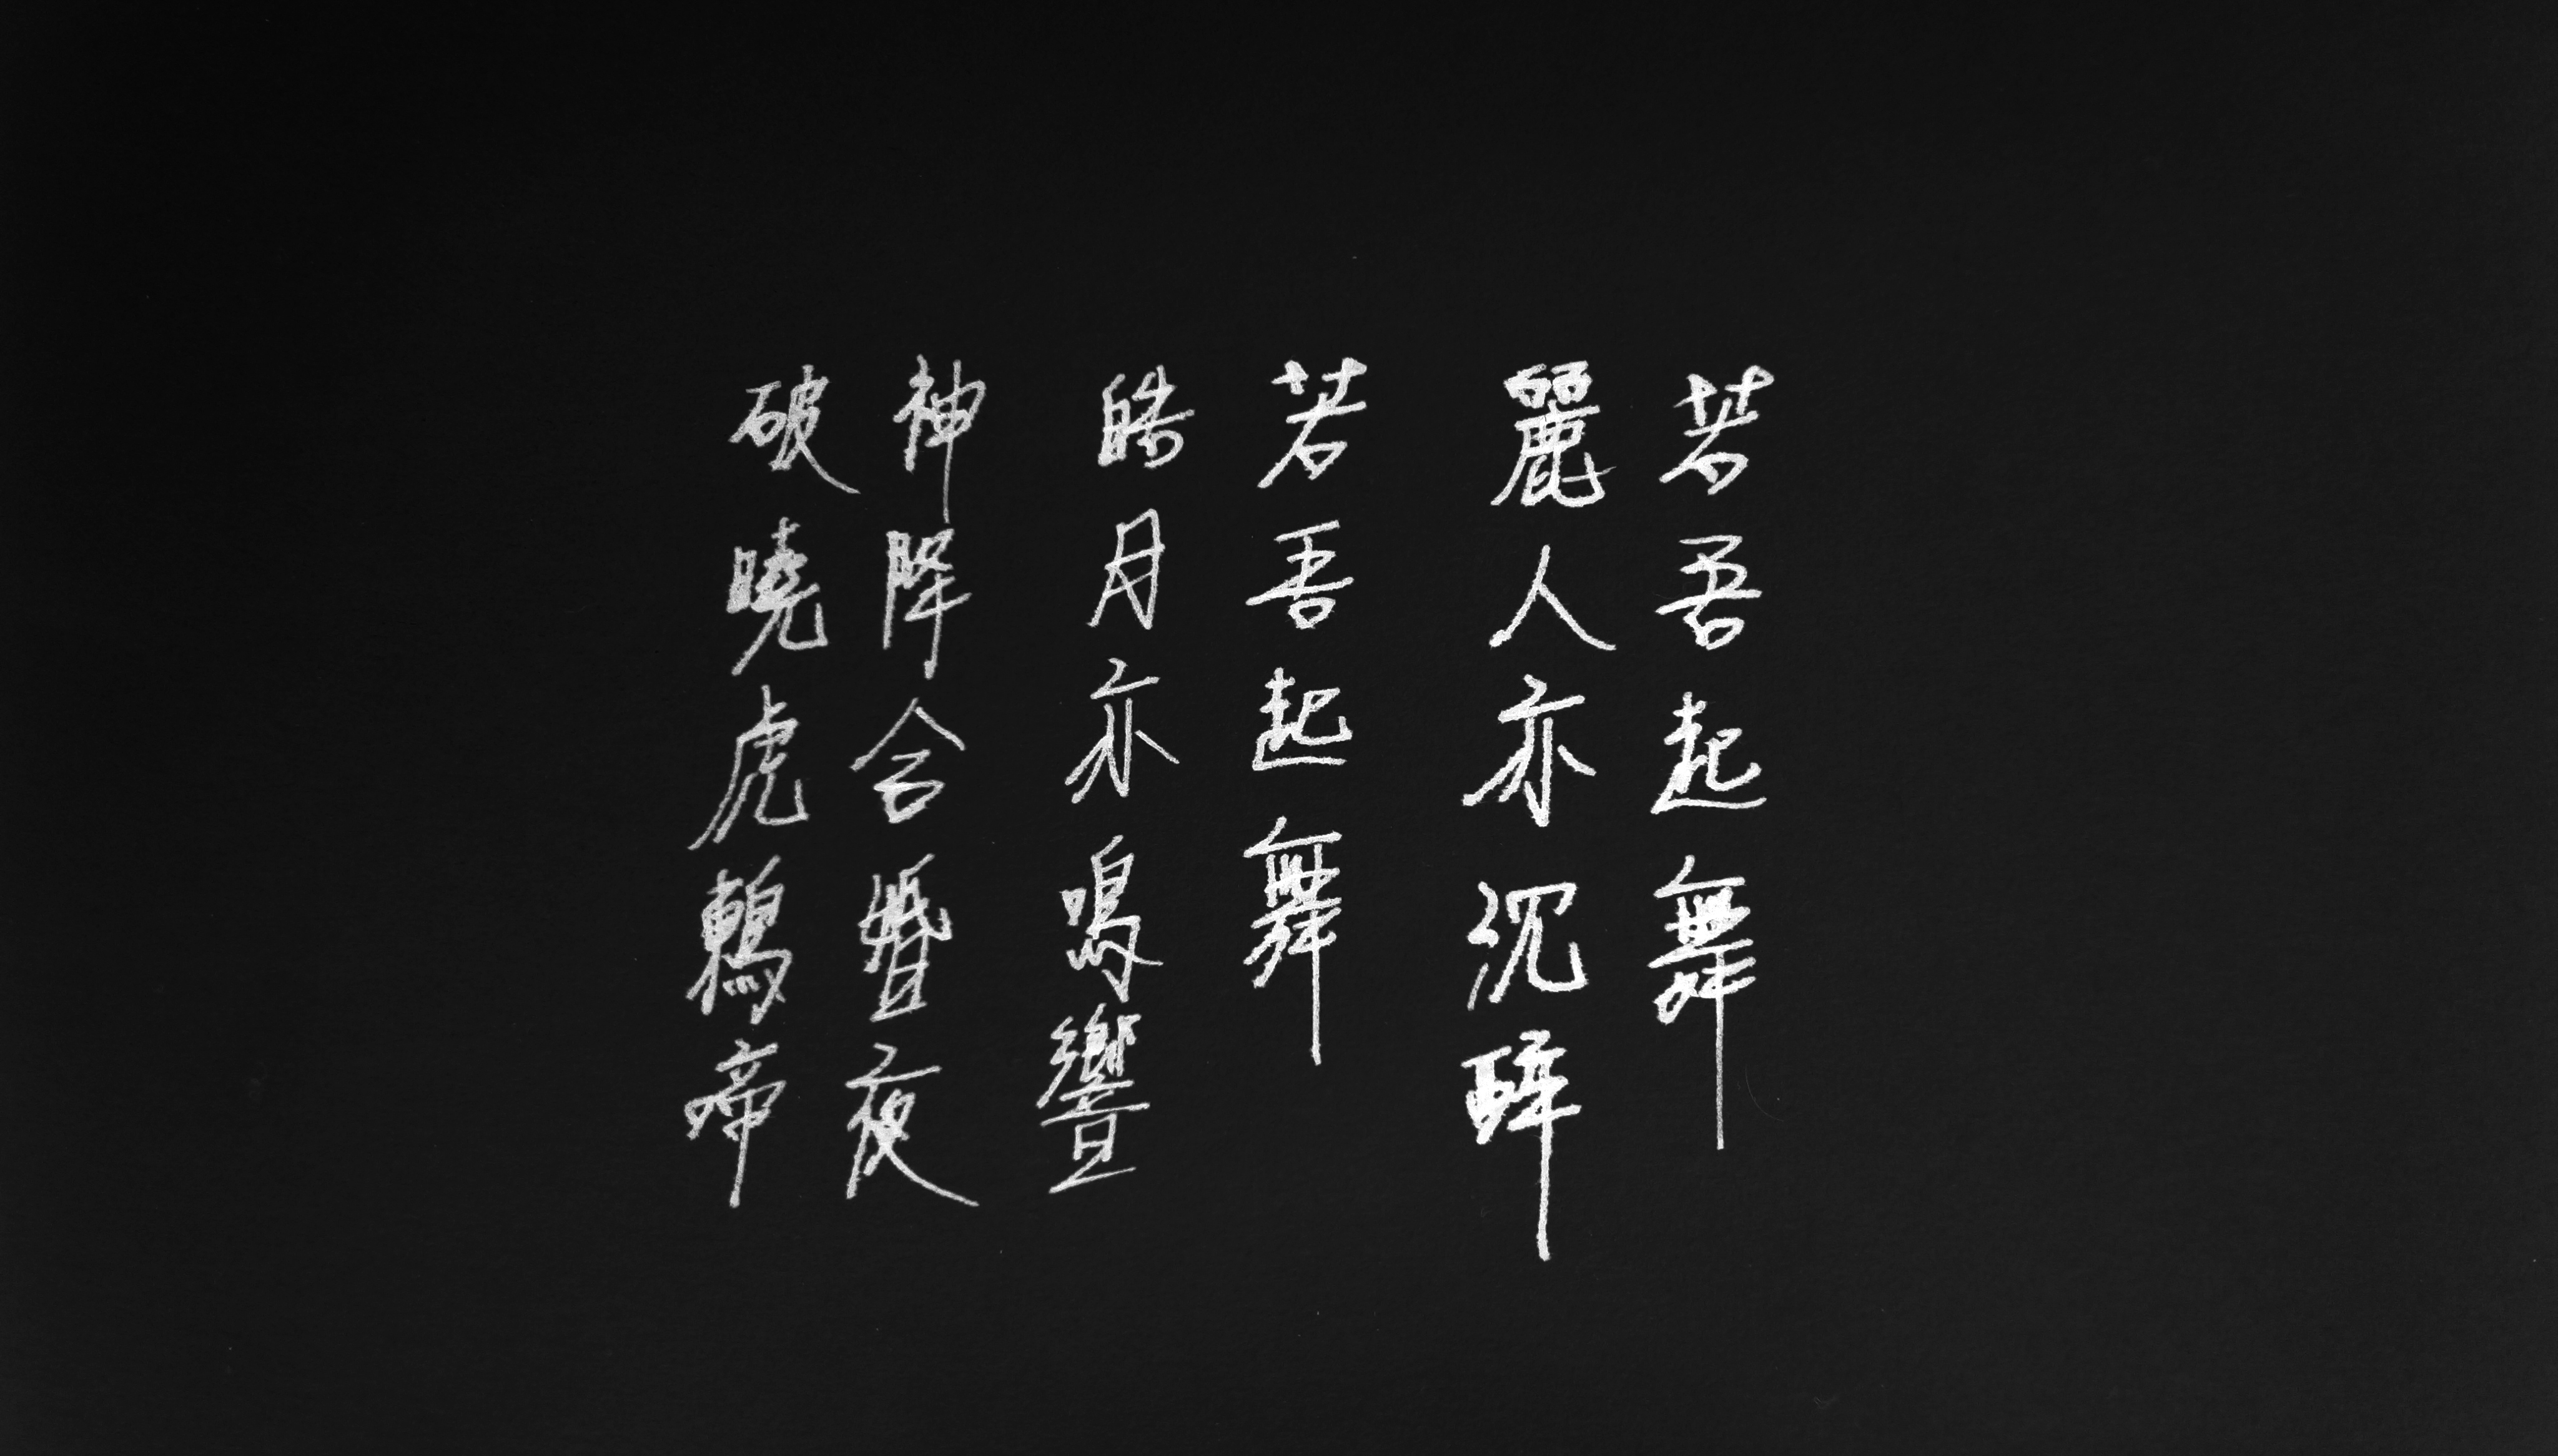 若吾起舞
麗人亦沉醉
若吾起舞
皓月亦鳴響
神降合婚夜
破曉虎鶇啼